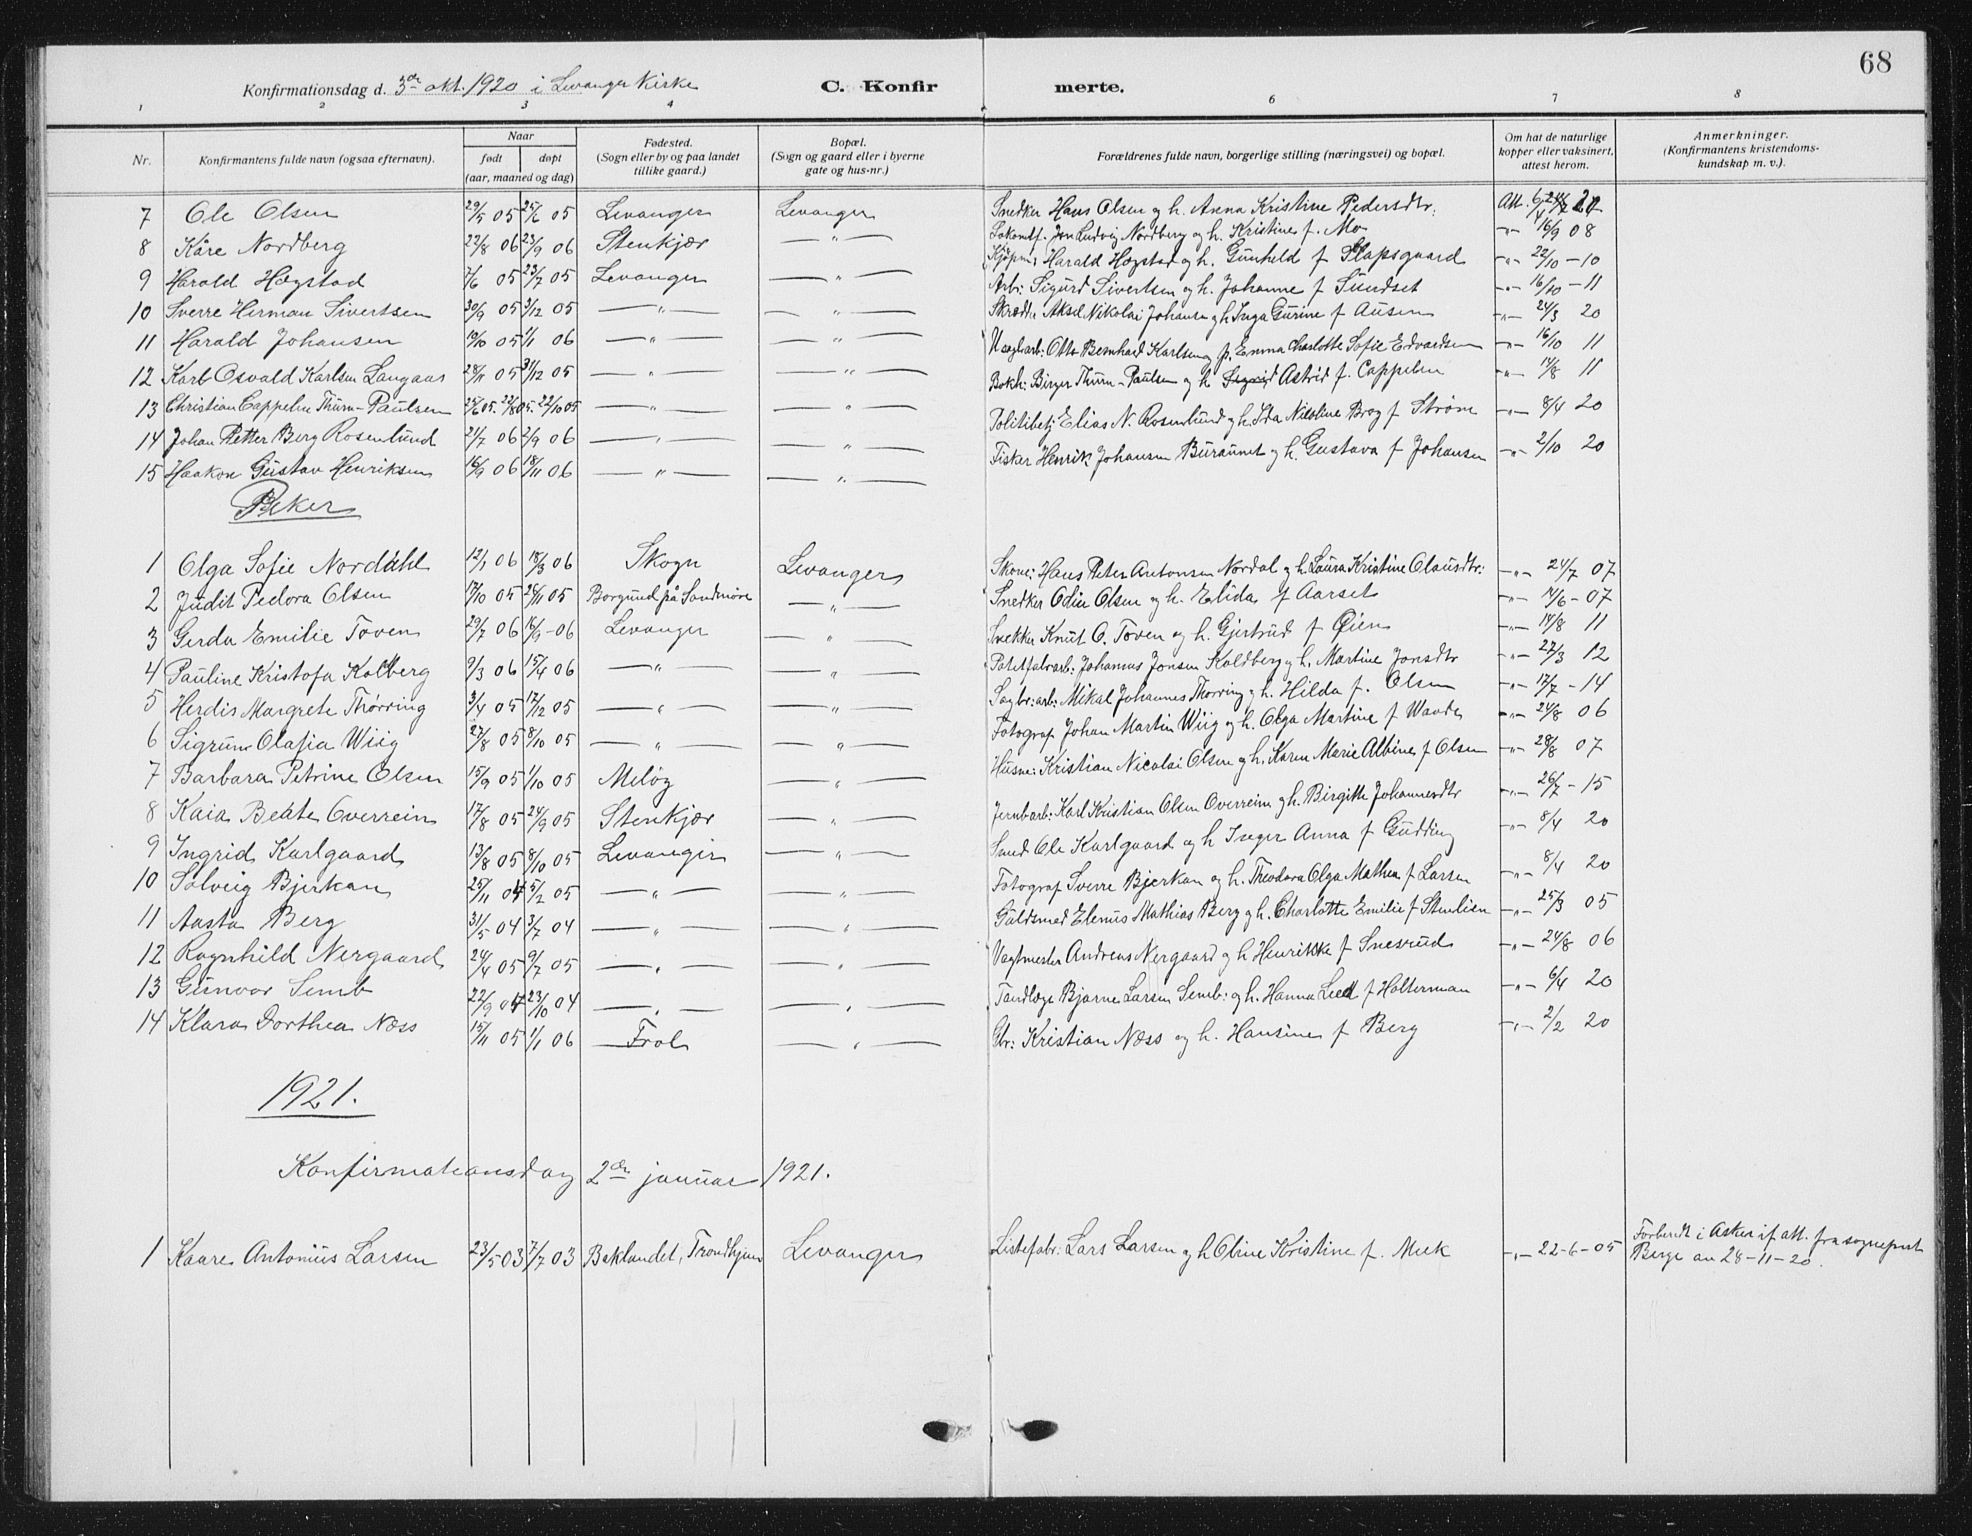 68
Konfirmationsdag d. 3die okt. 1920 i Levanger Kirke C. Konfirmerte.
1 2 3 4 6 7 8
Nr. Konfirmantens fulde navn (ogsaa efternavn). Naar født døpt (aar, maaned og dag) Fødested. (Sogn eller by og paa landet tillike gaard.) Bopæl. (Sogn og gaard eller i byerne gate og hus-nr.) Forældrenes fulde navn, borgerlige stilling (næringsvei) og bopæl. Om hat de naturlige kopper eller vaksinert, attest herom. Anmerkninger. (Konfirmantens kristendoms-kundskap m. v.).
7 Ole Olsen 29/5 05 25/6 05 Levanger Levanger Snedker Hans Olsen og h. Anna Kristine Pedersdtr: Att.
8 Kåre Nordberg 22/8 06 23/9 06 Stenkjær —"— Lokomtf. Jon Ludvig Nordberg og h. Kristine f. Mo —"— 16/9 08
9 Harald Hogstad 7/6 05 23/7 05 Levanger —"— Kjøpm: Harald Hogstad og h. Gunhild f Slapsgaard —"— 22/10 – 10
10 Sverre Herman Sivertsen 30/9 05 3/12 05 —"— —"— Arb: Sigurd Sivertsen og h. Johanne f Sundset —"— 16/10 – 11
11 Harald Johansen 19/10 05 1/1 06 —"— —"— Skrædd: Aksel Nikolai Johansen og h Inga Gurine f Ausen —"— 24/3 20
12 Karl Osvald Karlsen Langaas 28/11 05 31/12 05 —"— —"— Otto Bernhard Karlsen og h. Emma Charlotte Sofie Edvardsen —"— 16/10 11
13 Christian Cappelen Thurn-Paulsen 25/6 05. 22/8 05. 22/10 05 —"— —"— Bokh: Birger Thurn-Paulsen og h Sigrid Astrid f. Cappelen —"— 14/8 11
14 Johan Petter Berg Rosenlund 21/7 06 2/9 06 —"— —"— Politibetj Elias N. Rosenlund og h. Ida Nilsine Brog f Strøm —"— 8/4 20
15 Haakon Gustav Henriksen 16/9 06 18/11 06 —"— —"— Fisker Henrik Johansen Buraunet og h. Gustava f Johansen —"— 2/10 20
Piker
1 Olga Sofie Nordahl 12/1 06 18/3 06 Skogn Levanger Skom: Hans Peter Antonsen Nordal og h. Laura Kristine Olausdtr: —"— 24/7 07
2 Judit Pedora Olsen 17/10 05 26/11 05 Borgund på Søndmøre —"— Snedker Odin Olsen og h. Elida f Aarset —"— 14/6 – 07
3 Gerda Emilie Toven 29/7 06 16/9 – 06 Levanger —"— Snekker Knut O. Toven og h. Gjertrud f Øien —"— 14/8 11
4 Pauline Kristofa Kolberg 9/3 06 15/4 06 —"— —"— Johannes Jonsen Koldberg og h. Martine Jonsdtr —"— 27/3 12
5 Herdis Margrete Thørring 3/4 05 17/12 05 —"— —"— Sagbr: arb: Mikal Johannes Thørring og h. Hilda f. Olsen —"— 17/7 – 14
6 Sigrun Olafia Wiig 27/8 05 8/10 05 —"— —"— Fotograf Johan Martin Wiig og h. Olga Martine f Waade —"— 24/8 06
7 Barbara Petrine Olsen 15/9 05 1/10 05 Meløy —"— Husm: Kristian Nicolai Olsen og h. Karen Marie Albine f Olsen —"— 28/8 07
8 Kaia Beate Overrein 17/8 05 24/9 05 Stenkjær —"— Jernbarb: Karl Kristian Olsen Overrein og h. Birgitte Johannesdtr —"— 26/7 – 15
9 Ingrid Karlgaard 13/8 05 8/10 05 Levanger —"— Smed Ole Karlgaard og h Inger Anna f Gudding —"— 8/4 20
10 Solveig Bjerkan 25/11 04 5/2 05 —"— —"— Fotograf Sverre Bjerkan og h. Theodora Olga Mathea f Larsen —"— 8/4 20
11 Aasta Berg 31/5 04 3/7 04 —"— —"— Guldsmed Elenus Mathias Berg og h. Charlotte Emilie f Stenlien —"— 25/3 05
12 Ragnhild Nergaard 24/4 05 9/7 05 —"— —"— Vagtmester Andreas Nergaard og h Henrikke f Snesrud —"— 24/8 06
13 Gunvor Semb 22/9 04 23/10 04 —"— —"— Tandlæge Bjarne Larsen Semb: og h. Hanna Lied f Holterman —"— 6/4 20
14 Klara Dorthea Næss 15/11 05 1/1 06 Frol —"— Gbr: Kristian Næss og h. Hansine f Berg —"— 2/2 20
1921.
Konfirmationsdag 2den januar 1921.
1 Kaare Antonius Larsen 23/5 03 7/7 03 Baklandet, Trondhjem Levanger Listefabr: Lars Larsen og h Oline Kristine f. Meek —"— 22-6-05 Forberedt i Asker if att. fra sogneprest
Berge av 28-11-20.